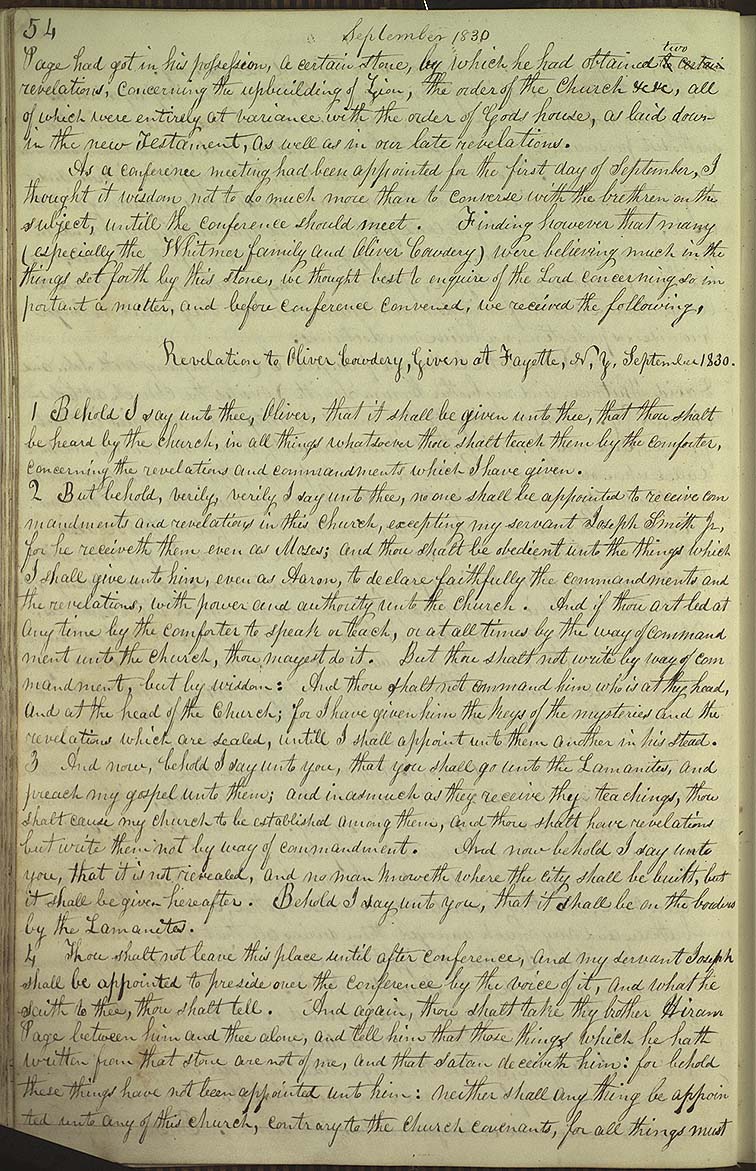 54
September 1830
Page had got in his possession, a certain stone, by which he had obtained to certain two
revelations, concerning the upbuilding of Zion, the order of the Church &c &c, all
of which were entirely at variance with the order of Gods house, as laid down
in the new Testament, as well as in our late revelations.
As a conference meeting had been appointed for the first day of September, I
thought it wisdom not to do much more than to converse with the brethren on the
subject, untill the conference should meet. Finding however that many
(especially the Whitmer family and Oliver Cowdery) were believing much in the
things set forth by this stone, we thought best to enquire of the Lord concerning so im
portant a matter, and before conference convened, we received the following,
Revelation to Oliver Cowdery, Given at Fayette, N, Y. September 1830.
1 Behold I say unto thee, Oliver, that it shall be given unto thee, that thou shalt
be heard by the church, in all things whatsoever thou shalt teach them by the comforter,
concerning the revelations and commandments which I have given.
2 But behold, verily, verily I say unto thee, no one shall be appointed to receive com
mandments and revelations in this church, excepting my servant Joseph Smith Jr,
for he receiveth them even as Moses; and thou shalt be obedient unto the things which
I shall give unto him, even as Aaron, to declare faithfully the commandments and
the revelations, with power and authority unto the church. And if thou art led at
any time by the comforter to speak or teach, or at all times by the way of command
ment unto the church, thou mayest do it. But thou shalt not write by way of com
mandment, but by wisdom: And thou shalt not command him who is at thy head,
and at the head of the Church; for I have given him the keys of the mysteries and the
revelations which are sealed, untill I shall appoint unto them another in his stead.
3 And now, behold I say unto you, that you shall go unto the Lamanites, and
preach my gospel unto them; and inasmuch as they receive thy teachings, thou
shalt cause my church to be established among them, and thou shalt have revelations
but write them not by way of commandment. And now behold I say unto
you, that it is not revealed, and no man knoweth where the city shall be built, but
it shall be given hereafter. Behold I say unto you, that it shall be on the borders
by the Lamanites.
4 Thou shalt not leave this place until after conference, and my servant Joseph
shall be appointed to preside over the conference by the voice of it, and what he
saith to thee, thou shalt tell. And again, thou shalt take thy brother Hiram
Page between him and thee alone, and tell him that those things which he hath
written from that stone are not of me, and that satan deceiveth him: for behold
these things have not been appointed unto him: neither shall any thing be appoin
ted unto any of this church, contrary to the church covenants, for all things must